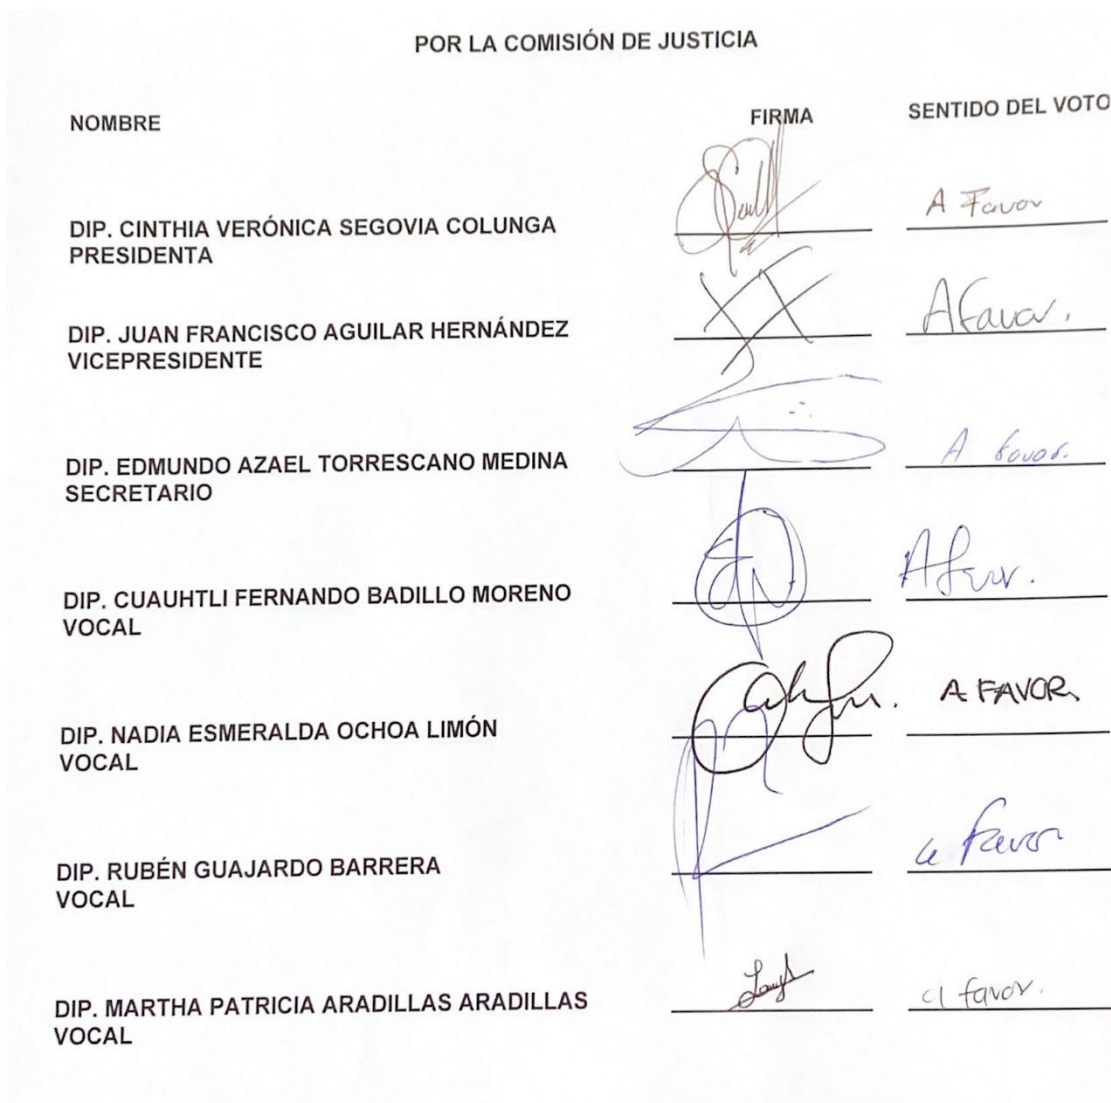 POR LA COMISIÓN DE JUSTICIA
NOMBRE FIRMA SENTIDO DEL VOTO
A Favor
DIP. CINTHIA VERÓNICA SEGOVIA COLUNGA
PRESIDENTA
A favor.
DIP. JUAN FRANCISCO AGUILAR HERNÁNDEZ
VICEPRESIDENTE
A favor.
DIP. EDMUNDO AZAEL TORRESCANO MEDINA
SECRETARIO
A favor.
DIP. CUAUHTLI FERNANDO BADILLO MORENO
VOCAL
A FAVOR.
DIP. NADIA ESMERALDA OCHOA LIMÓN
VOCAL
a favor
DIP. RUBÉN GUAJARDO BARRERA
VOCAL
a favor.
DIP. MARTHA PATRICIA ARADILLAS ARADILLAS
VOCAL